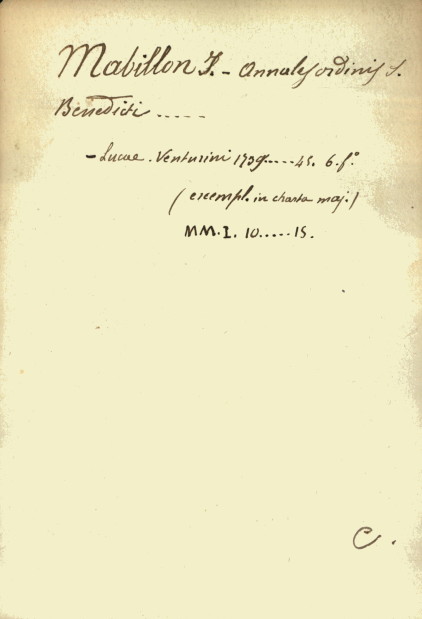 Mabillon J. - Annales ordinis S.
Benedicti .....
- Lucae. Venturini 1739.....45. 6. f.°
( exempl. in charta maj. )
MM. I. 10.....15.
C.